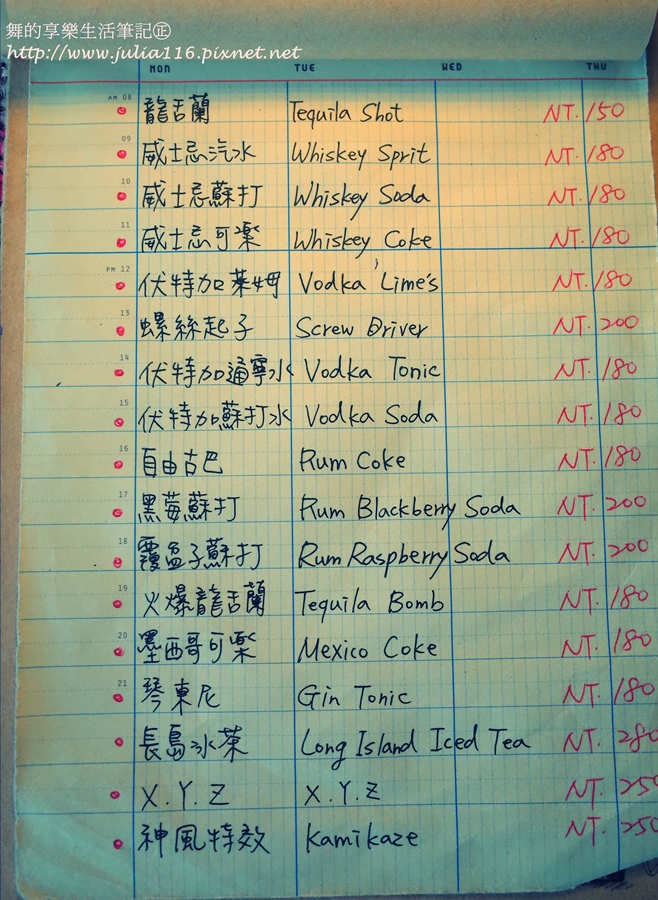 舞的享樂生活筆記㊣
http://www.julia116.pixnet.net
MON TUE WED THU
AM 08 龍舌蘭 Tequila Shot NT. 150
09 威士忌汽水 Whiskey Sprit NT. 180
10 威士忌蘇打 Whiskey Soda NT. 180
11 威士忌可樂 Whiskey Coke NT. 180
PM 12 伏特加萊姆 Vodka Lime's NT. 180
13 螺絲起子 Screw Driver NT. 200
14 伏特加通寧水 Vodka Tonic NT. 180
15 伏特加蘇打水 Vodka Soda NT. 180
16 自由古巴 Rum Coke NT. 180
17 黑莓蘇打 Rum Blackberry Soda NT. 200
18 覆盆子蘇打 Rum Raspberry Soda NT. 200
19 火爆龍舌蘭 Tequila Bomb NT. 180
20 墨西哥可樂 Mexico Coke NT. 180
21 琴東尼 Gin Tonic NT. 180
長島冰茶 Long Island Iced Tea NT. 280
X.Y.Z X.Y.Z NT. 250
神風特效 Kamikaze NT. 250